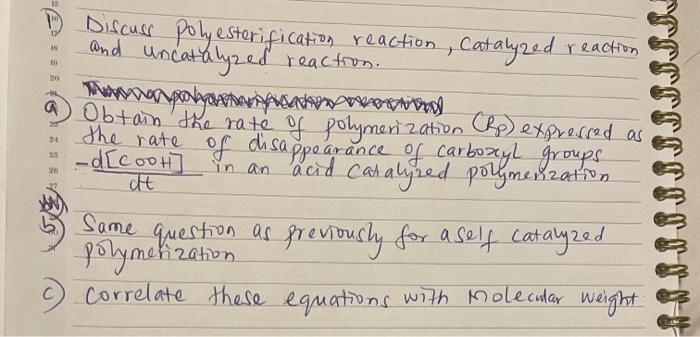 1) Discuss polyesterification reaction, catalyzed reaction
and uncatalyzed reaction.
a) Obtain the rate of polymerization (Rp) expressed as
the rate of disappearance of carboxyl groups
-d[COOH] in an acid catalyzed polymerization
dt
b) Same question as previously for a self catalyzed
polymerization
c) Correlate these equations with molecular weight